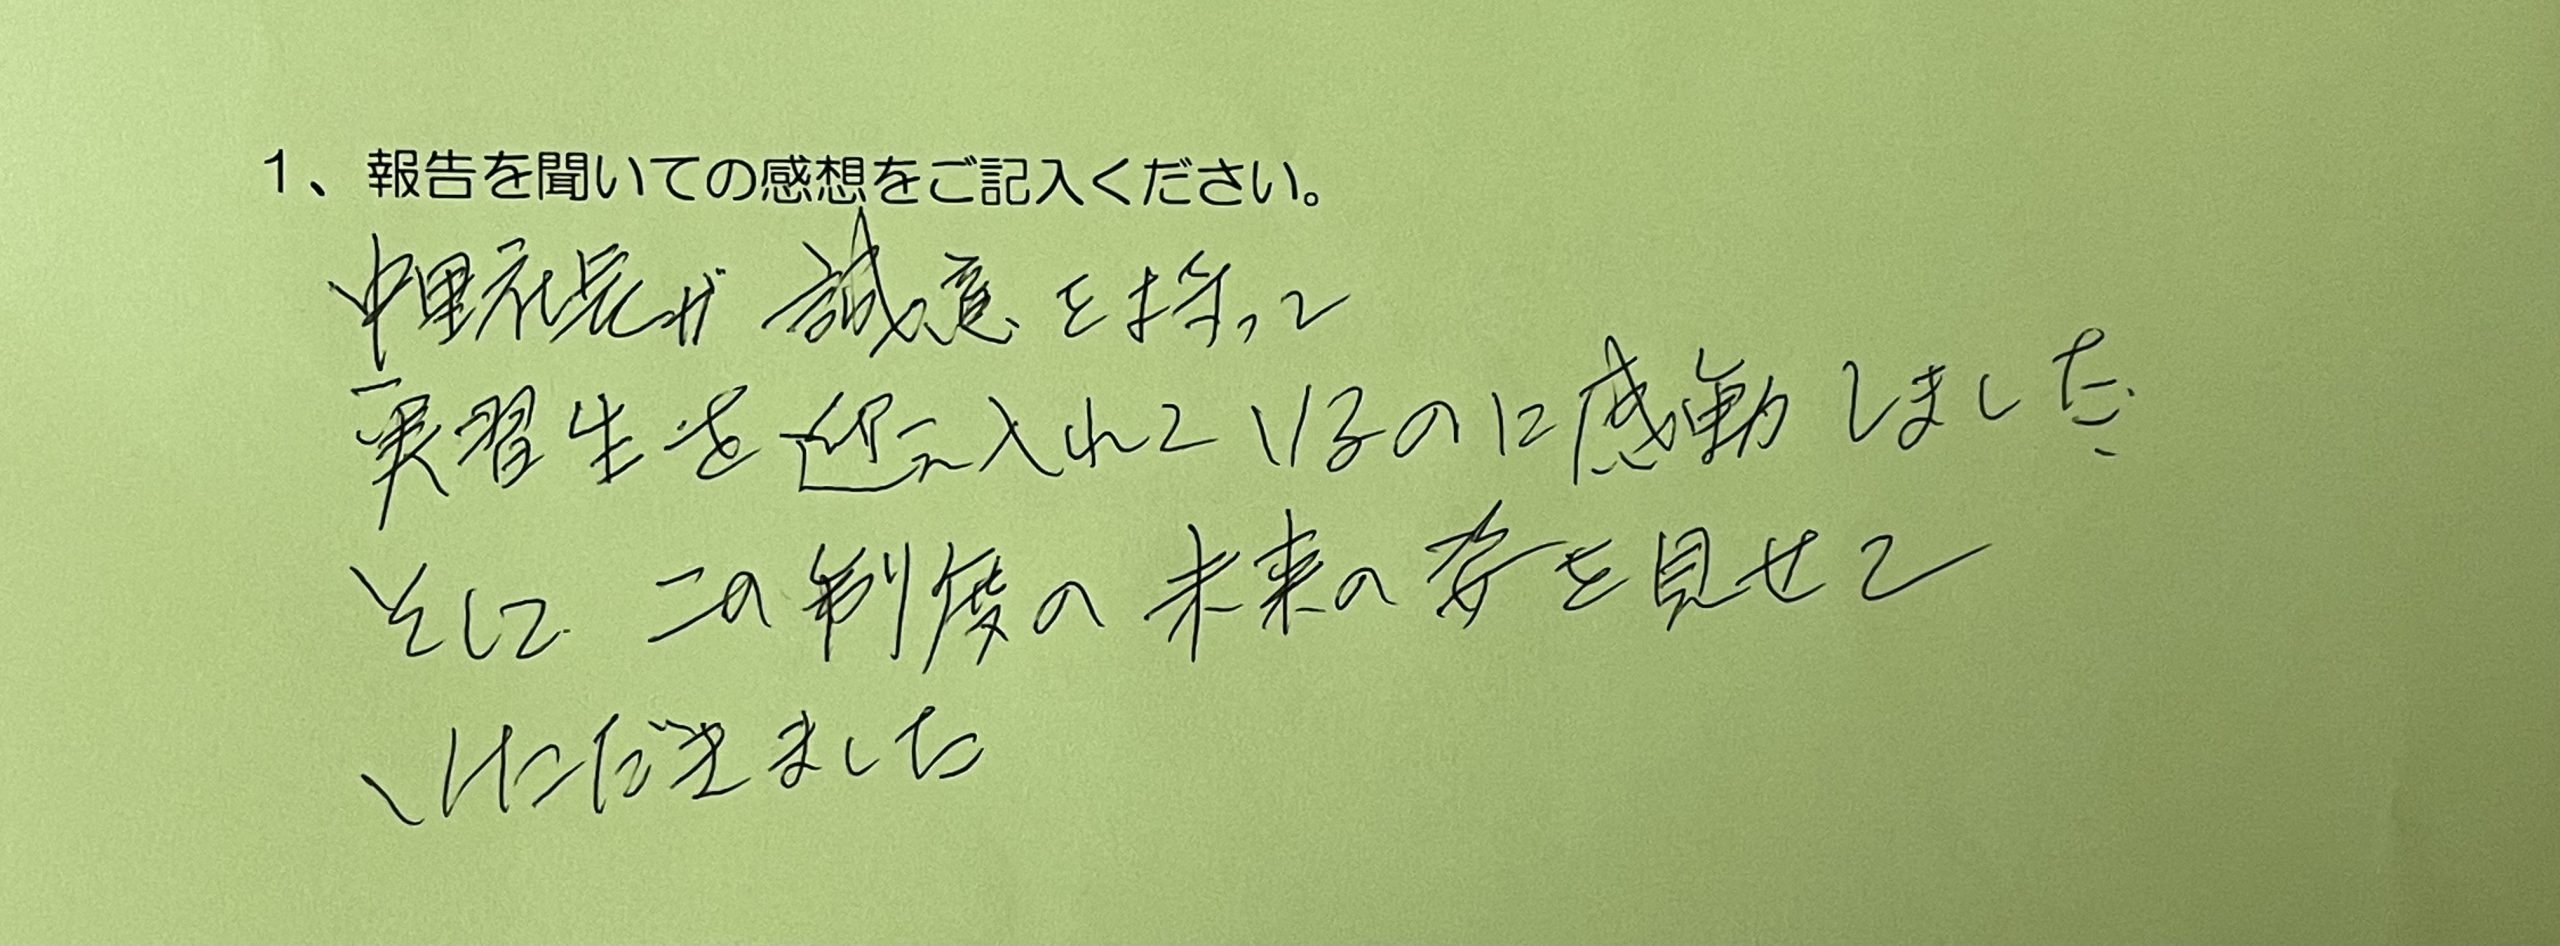 1、報告を聞いての感想をご記入ください。
中里社長が誠意を持って
実習生を迎え入れているのに感動しました。
そして この制度の未来の姿を見せて
いただきました